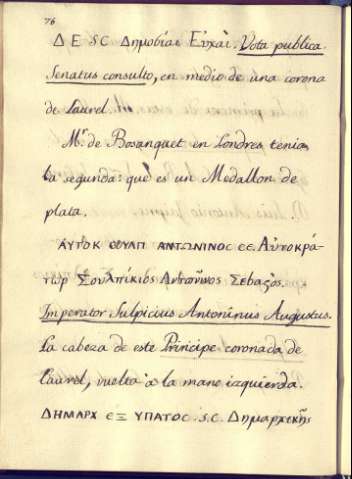 76
Δ Ε S C Δημοσίαι Ευχαὶ. Vota publica
Senatus consulto, en medio de una corona
de Laurel.
Mr. de Bosanquet en Londres tenia
la segunda: que es un Medallon de
plata.
ΑΥΤΟΚ CΟΥΛΠ ΑΝΤΩΝΙΝΟC CЄ. Αὐτοκρά-
τωρ Σουλπίκιος Αντωνῖνος Σεβαςος.
Imperator Sulpicius Antoninus Augustus.
La cabeza de este Principe coronada de
Laurel, vuelta à la mano izquierda.
ΔΗΜΑΡΧ ЄΞ ΥΠΑΤΟC. S.C. Δημαρχικῆς